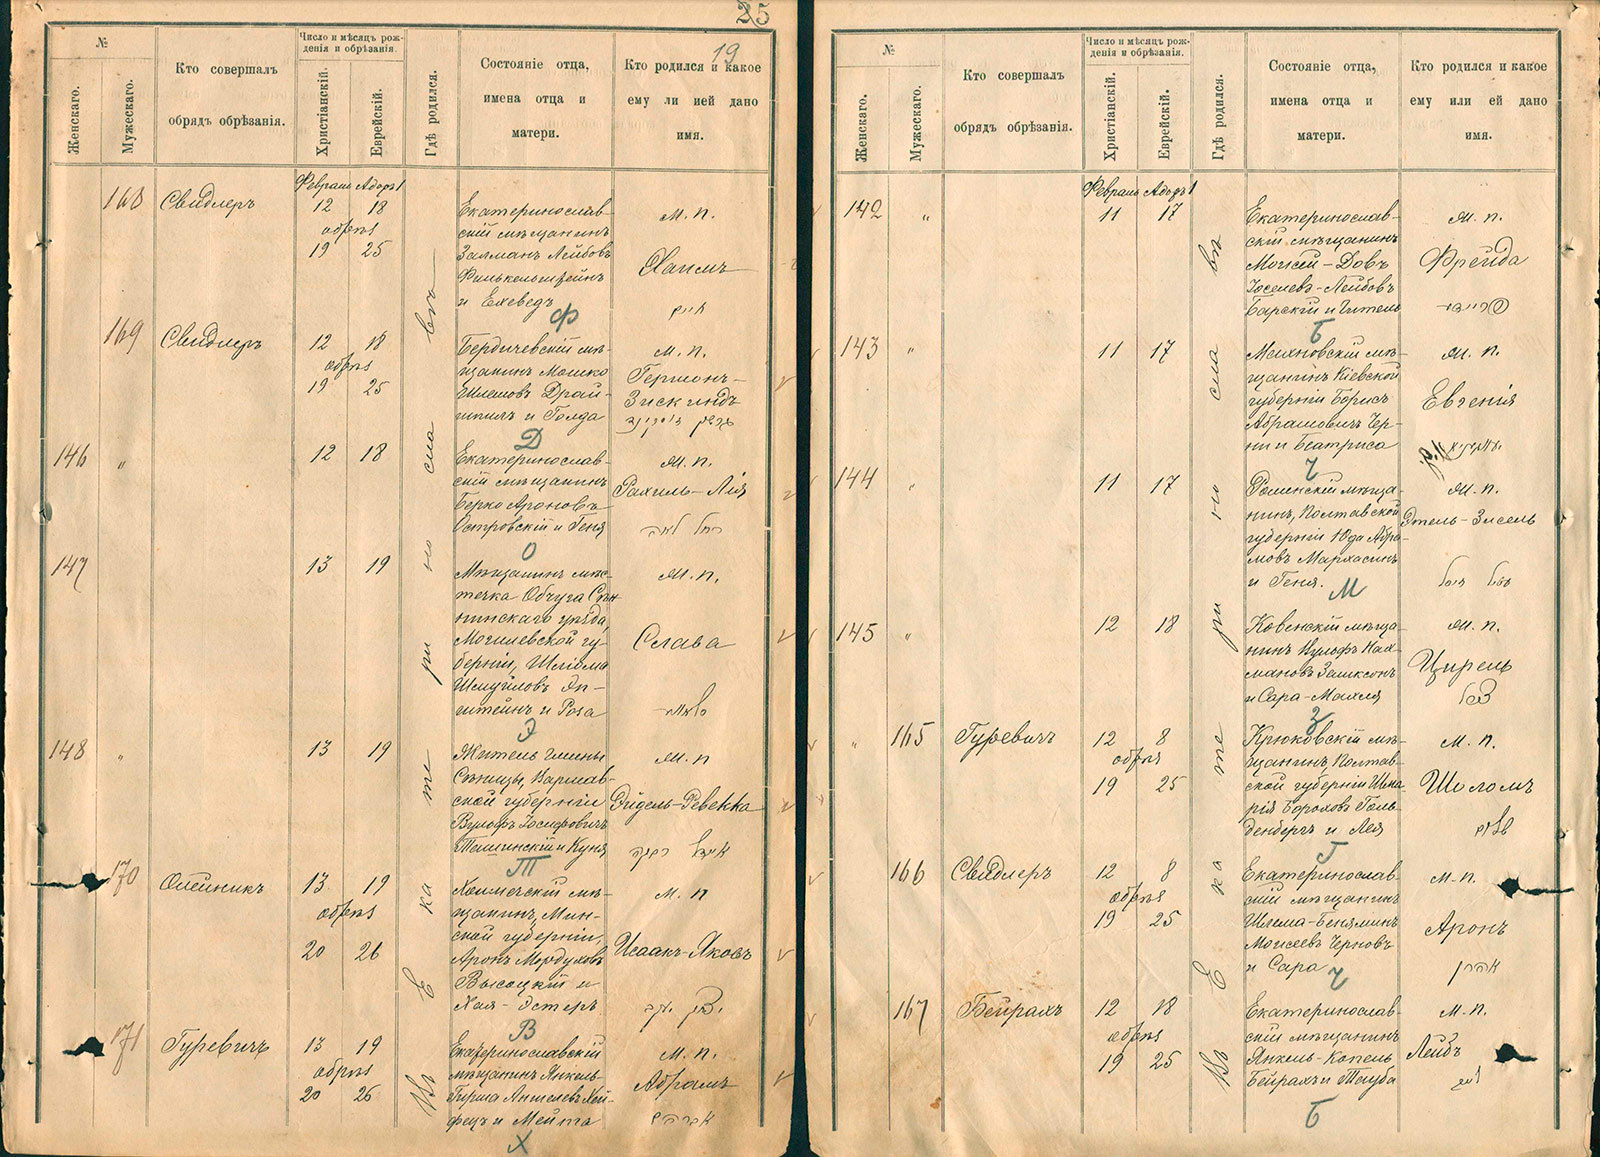 25
19
№
Женскаго.
Мужескаго.
Кто совершалъ
обрядъ обрѣзанія.
Число и мѣсяцъ рож-
денія и обрѣзанія.
Христіанскій.
Еврейскій.
Гдѣ родился.
Состояніе отца,
имена отца и
матери.
Кто родился и какое
ему ли ией дано
имя.
Февраль Адоръ 1
168 Свидлеръ 12 18
обрѣз
19 25
Екатеринослав-
скій мѣщанинъ
Залманъ Лейбовъ
Финкельштейнъ
и Ехеведъ
м. п.
Хаимъ
חיים
Ф
169 Свидлеръ 12 18
обрѣз
19 25
Бердичевскій мѣ-
щанинъ Мошко
Шлемовъ Драй-
шпилъ и Голда
м. п.
Гершонъ-
Зискиндъ
גרשון זיסקינד
Д
146 „ 12 18
Екатеринослав-
скій мѣщанинъ
Берко Ароновъ
Островскій и Геня
м. п.
Рахиль-Лея
רחל לאה
О
147 13 19
Мѣщанинъ мѣс-
течка Обчуга Сѣн-
нинскаго уѣзда,
Могилевской гу-
берніи, Шлема
Шмуйловъ Эп-
штейнъ и Роза
м. п.
Слава
Э
148 „ 13 19
Житель гмины
Сѣницы, Варшав-
ской губерніи
Вульфъ Іосифовичъ
и Куня
м. п
Эйдель-Ревекка
אידל רבקה
Т
170 Олейникъ 13 19
обрѣз
20 26
мѣ-
щанинъ, Мин-
ской губерніи,
Аронъ Мордуховъ
Высоцкій и
Хая-Эстеръ
м. п
Исаакъ-Яковъ
יצחק יעקב
В
171 Гуревичъ 13 19
обрѣз
20 26
Екатеринославскій
мѣщанинъ Янкель-
Гирша Хей-
фецъ и Мейта
м. п.
Абрамъ
אברהם
Х
Въ Екатеринославѣ
№
Женскаго.
Мужескаго.
Кто совершалъ
обрядъ обрѣзанія.
Число и мѣсяцъ рож-
денія и обрѣзанія.
Христіанскій.
Еврейскій.
Гдѣ родился.
Состояніе отца,
имена отца и
матери.
Кто родился и какое
ему или ей дано
имя.
Февраль Адоръ 1
142 „ 11 17
Екатеринослав-
скій мѣщанинъ
Моисей-Довъ
Іоселевъ-Лейбовъ
Барскій и Гитель
м. п.
Фрейда
פריידא
Б
143 „ 11 17
мѣ-
щанинъ Кіевской
губерніи Борисъ
Абрамовичъ Чер-
ни и Беатриса
м. п.
Евгенія
Ч
144 „ 11 17
Роменскій мѣща-
нинъ, Полтавской
губерніи Юда Абра-
мовъ Мархасинъ
и Геня.
м. п.
Этель-Зисель
עטל זיסל
М
145 „ 12 18
Ковенскій мѣща-
нинъ Вульфъ Нах-
мановъ
и Сара-Махля
м. п.
Цирель
צירל
З
„ 165 Гуревичъ 12 8
обрѣз
19 25
Крюковскій мѣ-
щанинъ, Полтав-
ской губерніи Шма-
рія Бороховъ Голь-
денбергъ и Лея
м. п.
Шоломъ
שלום
Г
166 Свидлеръ 12 8
обрѣз
19 25
Екатеринослав-
скій мѣщанинъ
Шлема-Беняминъ
Моисеевъ Черновъ
и Сара
м. п.
Аронъ
אהרן
Ч
167 Бейрахъ 12 18
обрѣз
19 25
Екатеринослав-
скій мѣщанинъ
Янкель-Копель
Бейрахъ и Тауба
м. п.
Лейбъ
לייב
Б
Въ Екатеринославѣ